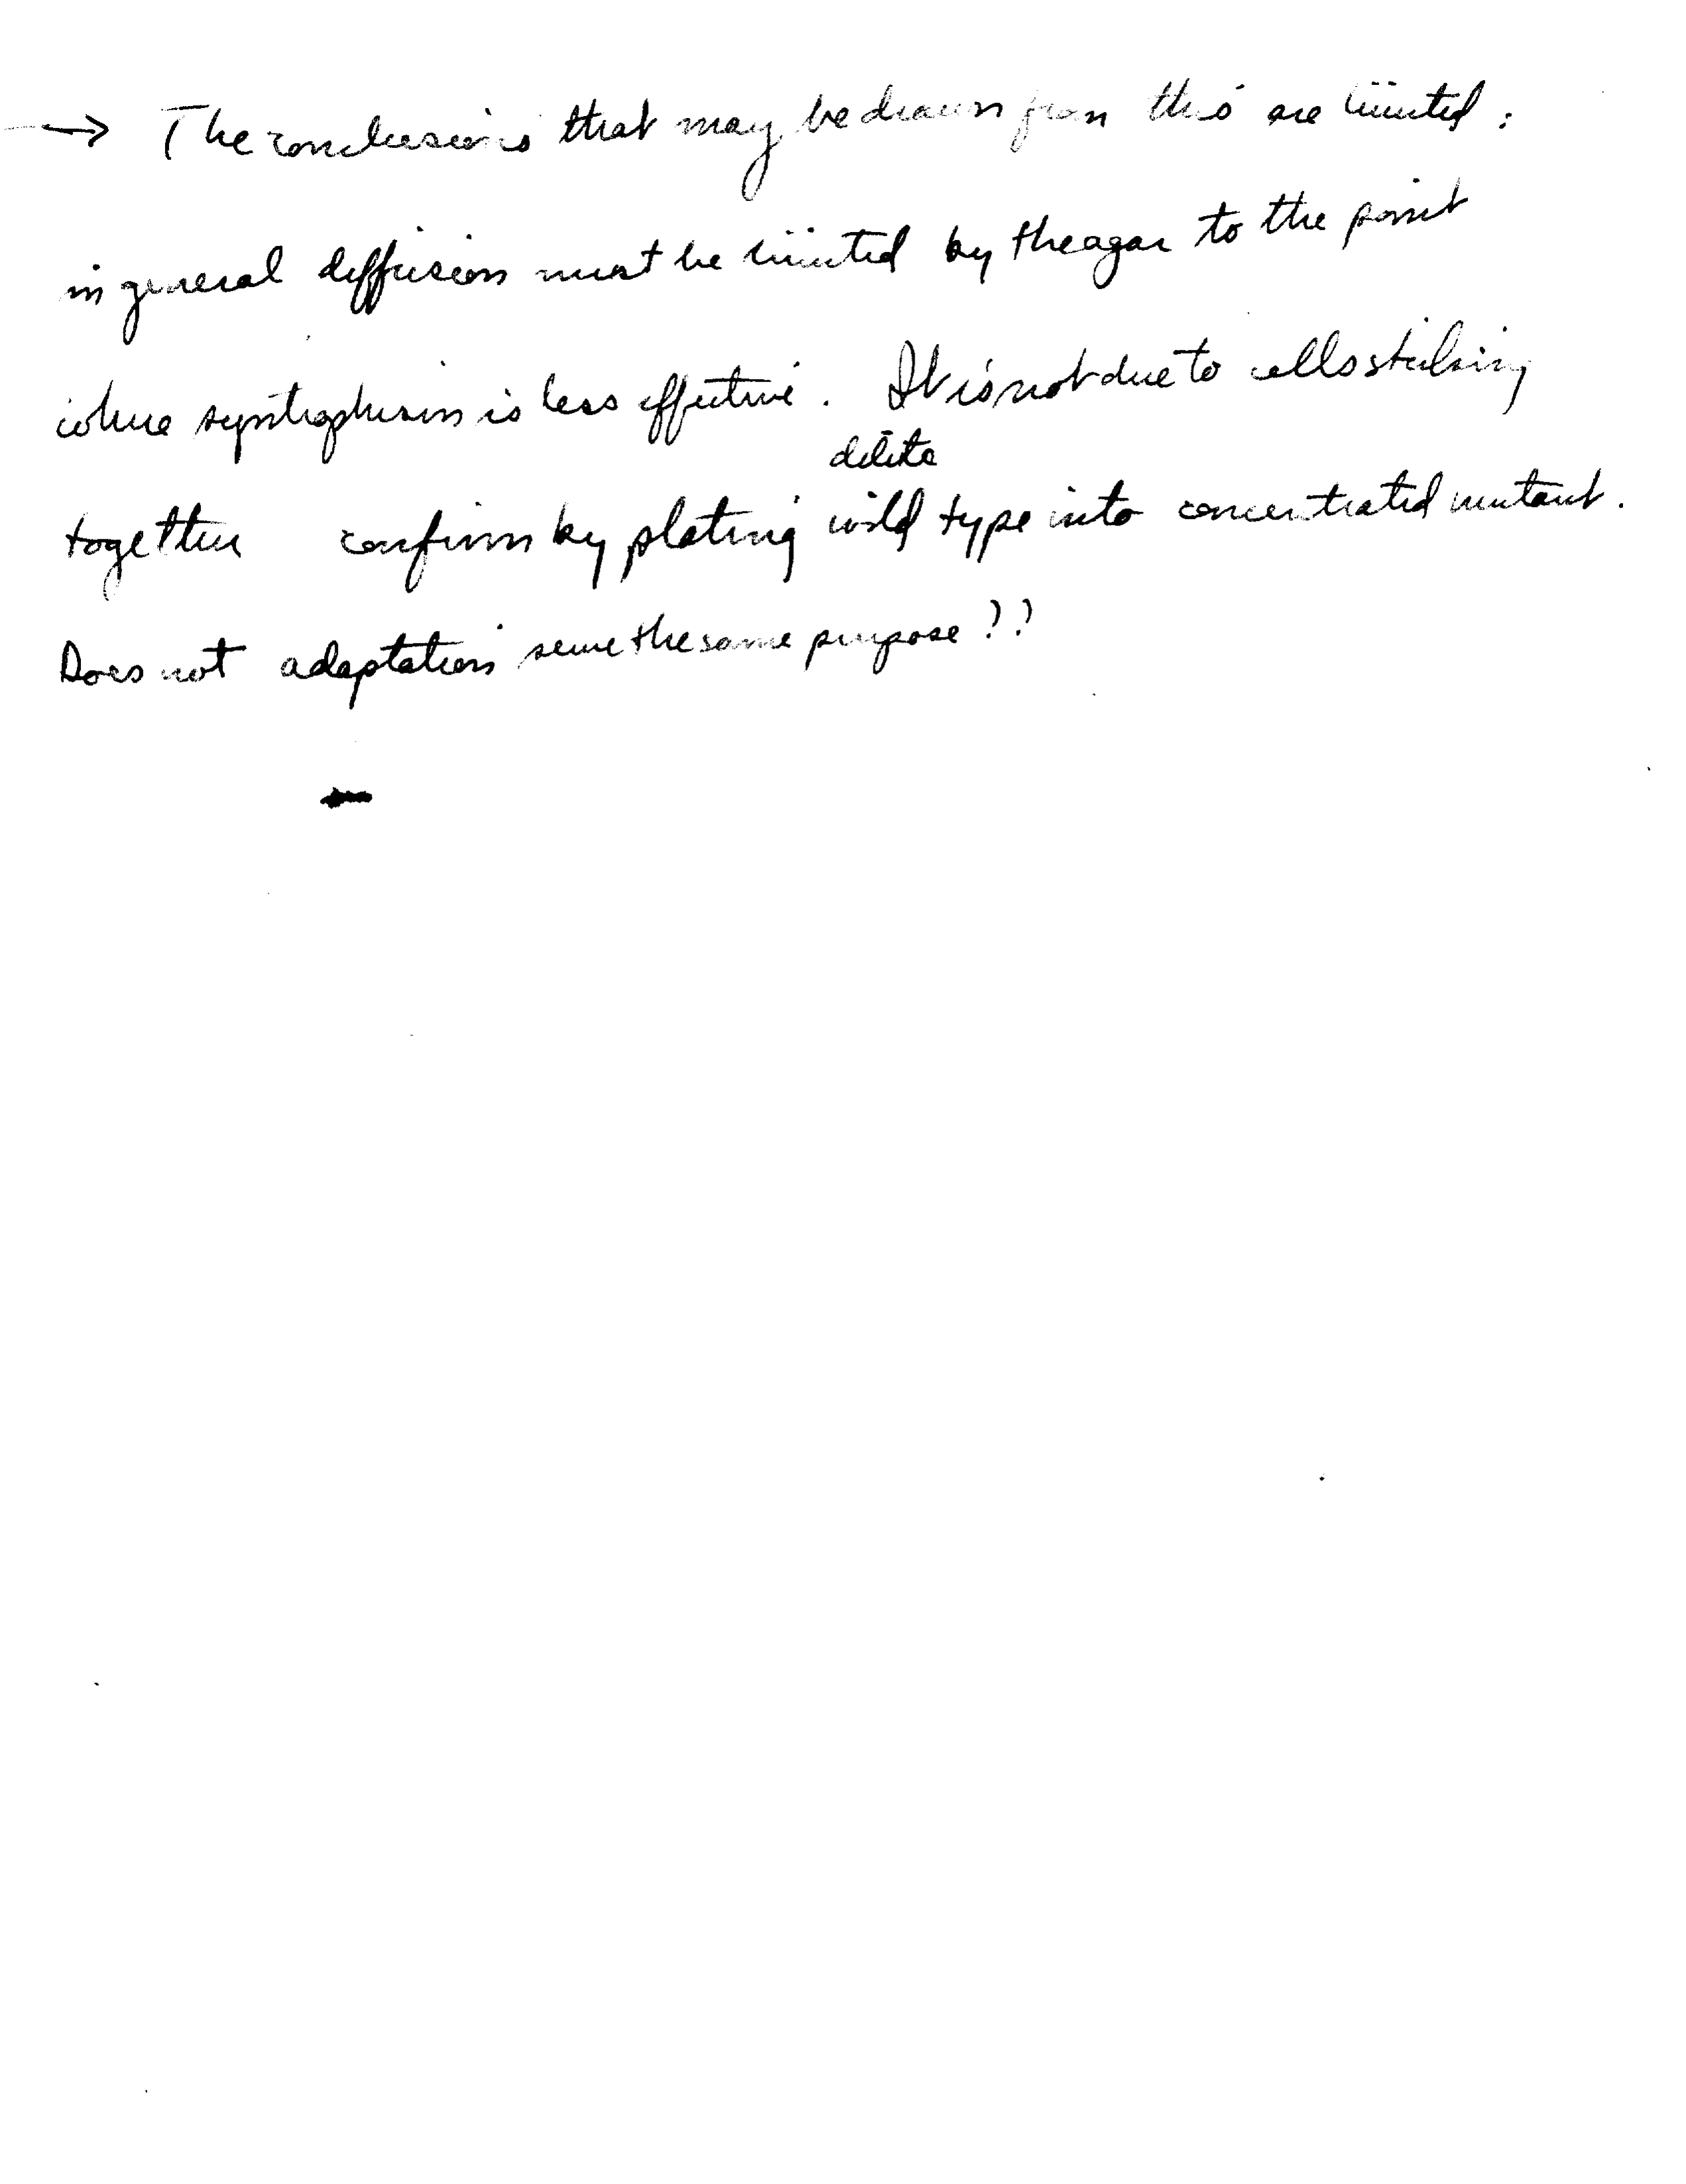 → The conclusions that may be drawn from this are limited:
in general diffusion must be limited by the agar to the point
where syntrophism is less effective. It is not due to cells sticking
dilute
together confirm by plating wild type into concentrated mutant.
Does not adaptation serve the same purpose??